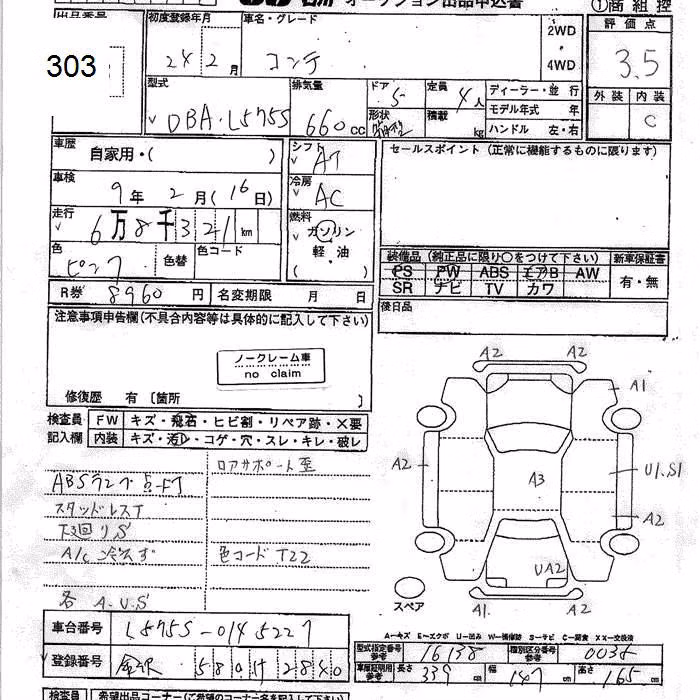 オークション出品申込書
①商 組 控
出品番号
303
初度登録年月
24 2 月
車名・グレード
コンテ
2WD
4WD
評 価 点
3.5
外 装 内 装
C
型式
DBA・L575S
排気量
660 cc
ドア
5
形状
定員
4 人
積載
kg
ディーラー・並 行
モデル年式 年
ハンドル 左・右
車歴
自家用・( )
シフト
AT
セールスポイント (正常に機能するものに限ります)
車検
9 年 2 月 (16 日)
冷房
AC
走行
6 万 8 千 3 2 1 km
燃料
ガソリン
軽・油
( )
色
ピンク
色替
色コード
装備品 (純正品に限り○をつけて下さい)
新車保証書
PS PW ABS エアB AW
SR ナビ TV カワ
有・無
R券 8960 円
名変期限 月 日
後日品
注意事項申告欄(不具合内容等は具体的に記入して下さい)
ノークレーム車
no claim
修復歴 有 〔箇所 〕
検査員
記入欄
FW キズ・飛石・ヒビ割・リペア跡・×要
内装 キズ・汚レ・コゲ・穴・スレ・キレ・破レ
ロアサポート歪
ABSランプ点灯
スタッドレスT
下回りS
A/C 冷えず
色コードT22
各 A.U.S
A2 A2
A1
A2
A3
U1.S1
A2
UA2
A1 A2
スペア
A−キズ E−エクボ U−凹み W−補修跡 S−サビ C−腐食 XX−交換済
車台番号 L575S-0145227
型式指定番号
参考
16138
類別区分番号
参考
0038
登録番号 金沢 580 サ 2840
車庫証明用
参考
長さ 339 cm
幅 147 cm
高さ 165 cm
検査員
希望出品コーナー(ご希望のコーナー名を記入下さい)